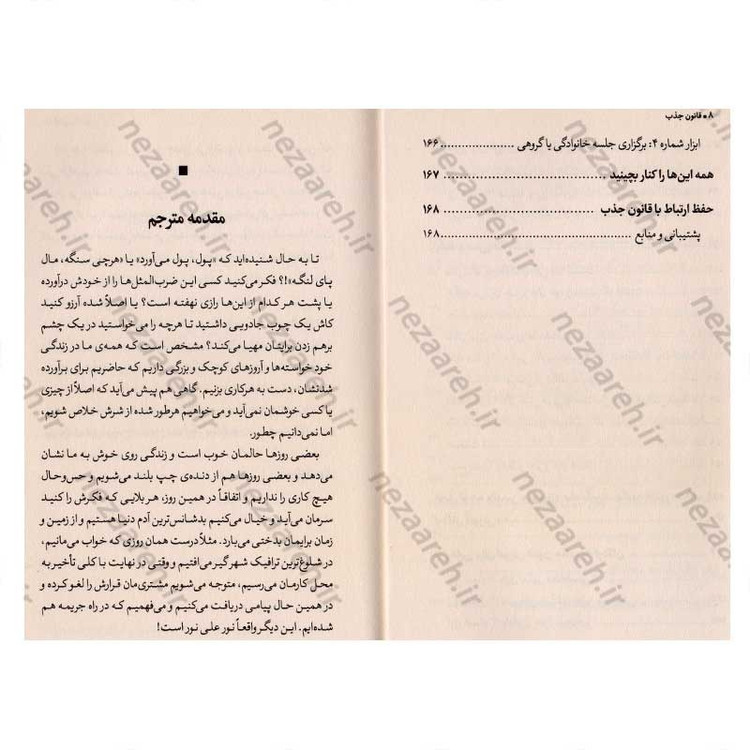 ۸ ▪ قانون جذب
ابزار شماره ۴: برگزاری جلسه خانوادگی یا گروهی ..................... ۱۶۶
همه این‌ها را کنار بچینید ................................ ۱۶۷
حفظ ارتباط با قانون جذب ............................ ۱۶۸
پشتیبانی و منابع ................................................ ۱۶۸
مقدمه مترجم
تا به حال شنیده‌اید که «پول، پول می‌آورد» یا «هرچی سنگه، مال
پای لنگه»!؟ فکر می‌کنید کسی این ضرب‌المثل‌ها را از خودش درآورده
یا پشت هر کدام از این‌ها رازی نهفته است؟ یا اصلاً شده آرزو کنید
کاش یک چوب جادویی داشتید تا هرچه را می‌خواستید در یک چشم
برهم زدن برایتان مهیا می‌کند؟ مشخص است که همه‌ی ما در زندگی
خود خواسته‌ها و آروزهای کوچک و بزرگی داریم که حاضریم برای برآورده
شدنشان، دست به هرکاری بزنیم. گاهی هم پیش می‌آید که اصلاً از چیزی
یا کسی خوشمان نمی‌آید و می‌خواهیم هرطور شده از شرش خلاص شویم،
اما نمی‌دانیم چطور.
بعضی روزها حالمان خوب است و زندگی روی خوش به ما نشان
می‌دهد و بعضی روزها هم از دنده‌ی چپ بلند می‌شویم و حس‌وحال
هیچ کاری را نداریم و اتفاقاً در همین روز، هر بلایی که فکرش را کنید
سرمان می‌آید و خیال می‌کنیم بدشانس‌ترین آدم دنیا هستیم و از زمین و
زمان برایمان بدختی می‌بارد. مثلاً درست همان روزی که خواب می‌مانیم،
در شلوغ‌ترین ترافیک شهر گیر می‌افتیم و وقتی در نهایت با کلی تأخیر به
محل کارمان می‌رسیم، متوجه می‌شویم مشتری‌مان قرارش را لغو کرده و
در همین حال پیامی دریافت می‌کنیم و می‌فهمیم که در راه جریمه هم
شده‌ایم. این دیگر واقعاً نور علی نور است!
nezaareh.ir
nezaareh.ir
nezaareh.ir
nezaareh.ir
nezaareh.ir
nezaareh.ir
nezaareh.ir
nezaareh.ir
nezaareh.ir